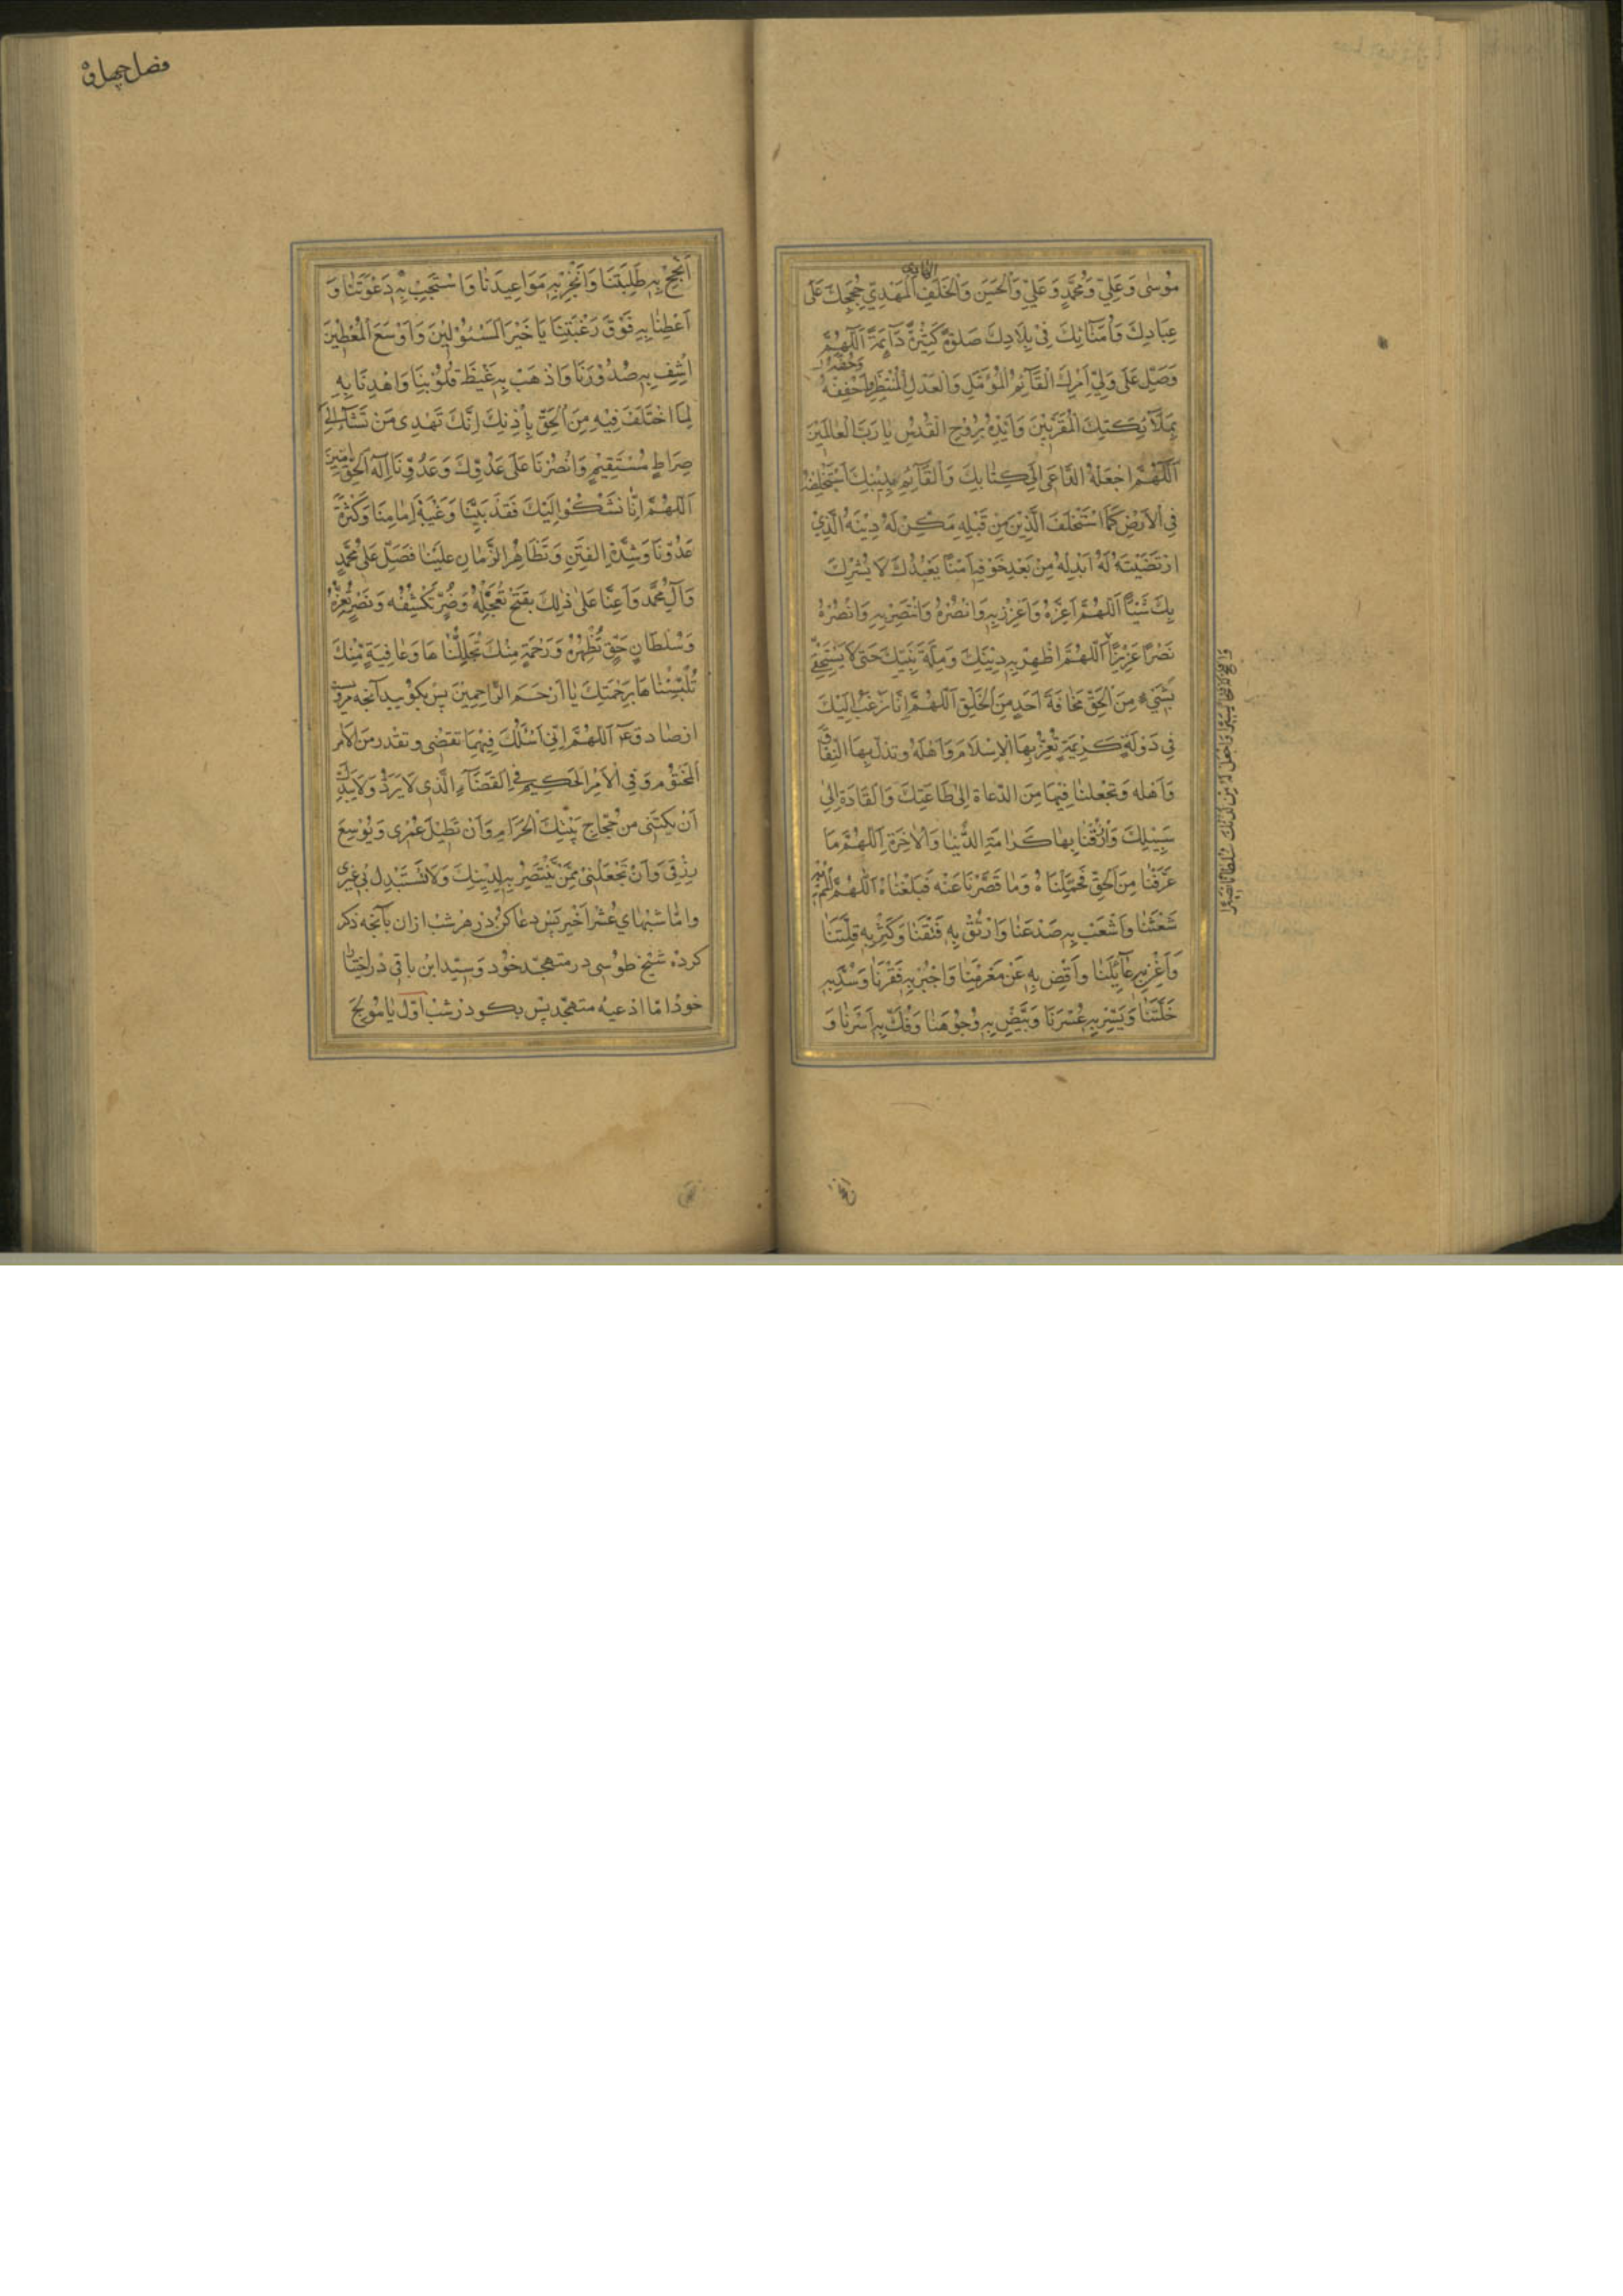 مُوسٰى وَعَلِيّ وَمُحَمَّدٍ وَعَلِيّ وَالْحَسَنِ وَالْخَلَفِ الْمَهْدِيِّ حُجَجِكَ عَلَى
عِبَادِكَ وَاُمَنَائِكَ فِيْ بِلَادِكَ صَلٰوةً كَثِيْرَةً دَآئِمَةً اَللّٰهُمَّ
وَصَلِّ عَلَى وَلِيِّ اَمْرِكَ الْقَآئِمِ الْمُؤَمَّلِ وَالْعَدْلِ الْمُنْتَظَرِ
بِمَلَآئِكَتِكَ الْمُقَرَّبِيْنَ وَاَيِّدْهُ بِرُوْحِ الْقُدُسِ يٰا رَبَّ الْعٰالَمِيْنَ
اَللّٰهُمَّ اجْعَلْهُ الدَّاعِىَ اِلٰى كِتٰابِكَ وَالْقَآئِمَ بِدِيْنِكَ اَسْتَخْلِفْهُ
فِي الْاَرْضِ كَمَا اسْتَخْلَفْتَ الَّذِيْنَ مِنْ قَبْلِهِ مَكِّنْ لَهُ دِيْنَهُ الَّذِيْ
ارْتَضَيْتَهُ لَهُ اَبْدِلْهُ مِنْ بَعْدِ خَوْفِهِ اَمْنًا يَعْبُدُكَ لَا يُشْرِكُ
بِكَ شَيْئًا اَللّٰهُمَّ اَعِزَّهُ وَاَعْزِزْ بِهِ وَانْصُرْهُ وَانْتَصِرْ بِهِ وَانْصُرْهُ
نَصْرًا عَزِيْزًا اَللّٰهُمَّ اَظْهِرْ بِهِ دِيْنَكَ وَمِلَّةَ نَبِيِّكَ حَتّٰى لَا يَسْتَخْفِيَ
بِشَيْءٍ مِنَ الْحَقِّ مَخَافَةَ اَحَدٍ مِنَ الْخَلْقِ اَللّٰهُمَّ اِنَّا نَرْغَبُ اِلَيْكَ
فِي دَوْلَةٍ كَرِيْمَةٍ تُعِزُّ بِهَا الْاِسْلَامَ وَاَهْلَهُ وتذل بِهَا النِفَاقَ
وَاَهْلَه وَتجْعَلُنٰا فِيْهَا مِنَ الدّعاة اِلٰى طَاعَتِكَ وَالْقَادَةِ اِلٰى
سَبِيْلِكَ وَارْزُقْنٰا بِهٰا كَرٰامَةَ الدُّنْيٰا وَالْاٰخِرَةِ اَللّٰهُمَّ مَا
عَرَّفْتَنٰا مِنَ الْحَقِّ فَحَمِّلْنٰاهُ وَمٰا قَصُرْنَا عَنْه فَبَلِّغْنٰاهُ اَللّٰهُمَّ الْمُمْ بِهِ
شَعْثَنٰا وَاشْعَبْ بِهِ صَدْعَنٰا وَارْتُقْ بِهِ فَتْقَنٰا وَكَثِّرْ بِه قِلَّتَنٰا
وَاَغْنِ بِهِ عٰآئِلَنٰا وَاَقْضِ بِهِ عَنْ مَغْرَمِنٰا وَاجْبُرْ بِهِ فَقْرَنٰا وَسُدَّ بِهِ
خَلَّتَنٰا وَيَسِّرْ بِهِ عُسْرَنَا وَبَيِّضْ بِهِ وُجُوْهَنٰا وَفُكَّ بِهِ اَسْرَنٰا وَ
وَافْتَحْ لَهُ فَتْحًا يَسِيْرًا وَاجْعَلْ لَهُ مِنْ لَدُنْكَ سُلْطٰانًا نَصِيْرًا
فصل چهل و
اَنْجِحْ بِهِ طَلِبَتَنَا وَاَنْجِزْ بِهِ مَوَاعِيدَنٰا وَاسْتَجِبْ بِهِ دَعْوَتَنٰا وَ
اَعْطِنٰا بِهِ فَوْقَ رَغْبَتِنَا يٰا خَيْرَ الْمَسْئُوْلِيْنَ وَاَوْسَعَ الْمُعْطِيْنَ
اِشْفِ بِهِ صُدُوْرَنَا وَاذْهَبْ بِهِ غَيْظَ قُلُوْبِنٰا وَاهْدِنَا بِهِ
لِمَا اخْتُلِفَ فِيْهِ مِنَ الْحَقِّ بِاِذْنِكَ اِنَّكَ تَهْدِى مَنْ تَشَآءُ اِلٰى
صِرَاطٍ مُسْتَقِيْمٍ وَانْصُرْنَا عَلَى عَدُوِّكَ وَعَدُوِّنَا اِلٰهَ الْحَقِّ اٰمِيْنَ
اَللّٰهُمَّ اِنّٰا نَشْكُوْا اِلَيْكَ فَقْدَ نَبِيِّنٰا وَغَيْبَةَ اِمٰامِنٰا وَكَثْرَةَ
عَدُوِّنَا وَشِدَّةَ الْفِتَنِ وَتَظٰاهُرَ الزَّمٰانِ عَلَيْنٰا فَصَلِّ عَلٰى مُحَمَّدٍ
وَآلِ مُحَمَّد وَاَعِنَّا عَلٰى ذٰلِكَ بِفَتْحٍ تُعَجِّلُهُ وَضُرٍّ تَكْشِفُه وَنَصْرٍ تُعِزُّهُ
وَسُلْطَانِ حَقٍّ تُظْهِرُهُ وَرَحْمَةٍ مِنْكَ تُجَلِّلُنٰاهَا وَعٰافِيَةٍ مِنْكَ
تُلْبِسُنٰاهَا بِرَحْمَتِكَ يٰا اَرْحَمَ الرّٰاحِمِيْنَ پس بكويد آنچه مرويست
از صادق ع اَللّٰهُمَّ اِنِّي اَسْئَلُكَ فِيْمَا تقضى وتقدر مِنَ الْاَمْرِ
الْمَحْتُوْمِ وَفِي الْاَمْرِ الْحَكِيْمِ فِى الْقَضَآءِ الَّذِى لَا يُرَدُّ وَلَا يُبَدَّلُ
اَنْ تكْتُبَنى من حُجّاجِ بَيْتِكَ الْحَرَامِ وَاَنْ تُطِيْلَ عُمْرِى وَتُوْسِعَ
رِزْقِى وَاَنْ تَجْعَلَنِىْ مِمَّنْ تَنْتَصِرُ بِهِ لِدِيْنِكَ وَلَا تَسْتَبْدِلْ بِي غَيْرِى
وامّا شبهاى عُشْر اخير پس دعا كن در هر شب ازان بآنچه ذكر
كرده شيخ طوسى در متهجد خود وسيد ابن باقى در اختيار
خود امّا ادعيه متهجد پس بكو در شب اوّل يٰا مُوْلِجَ